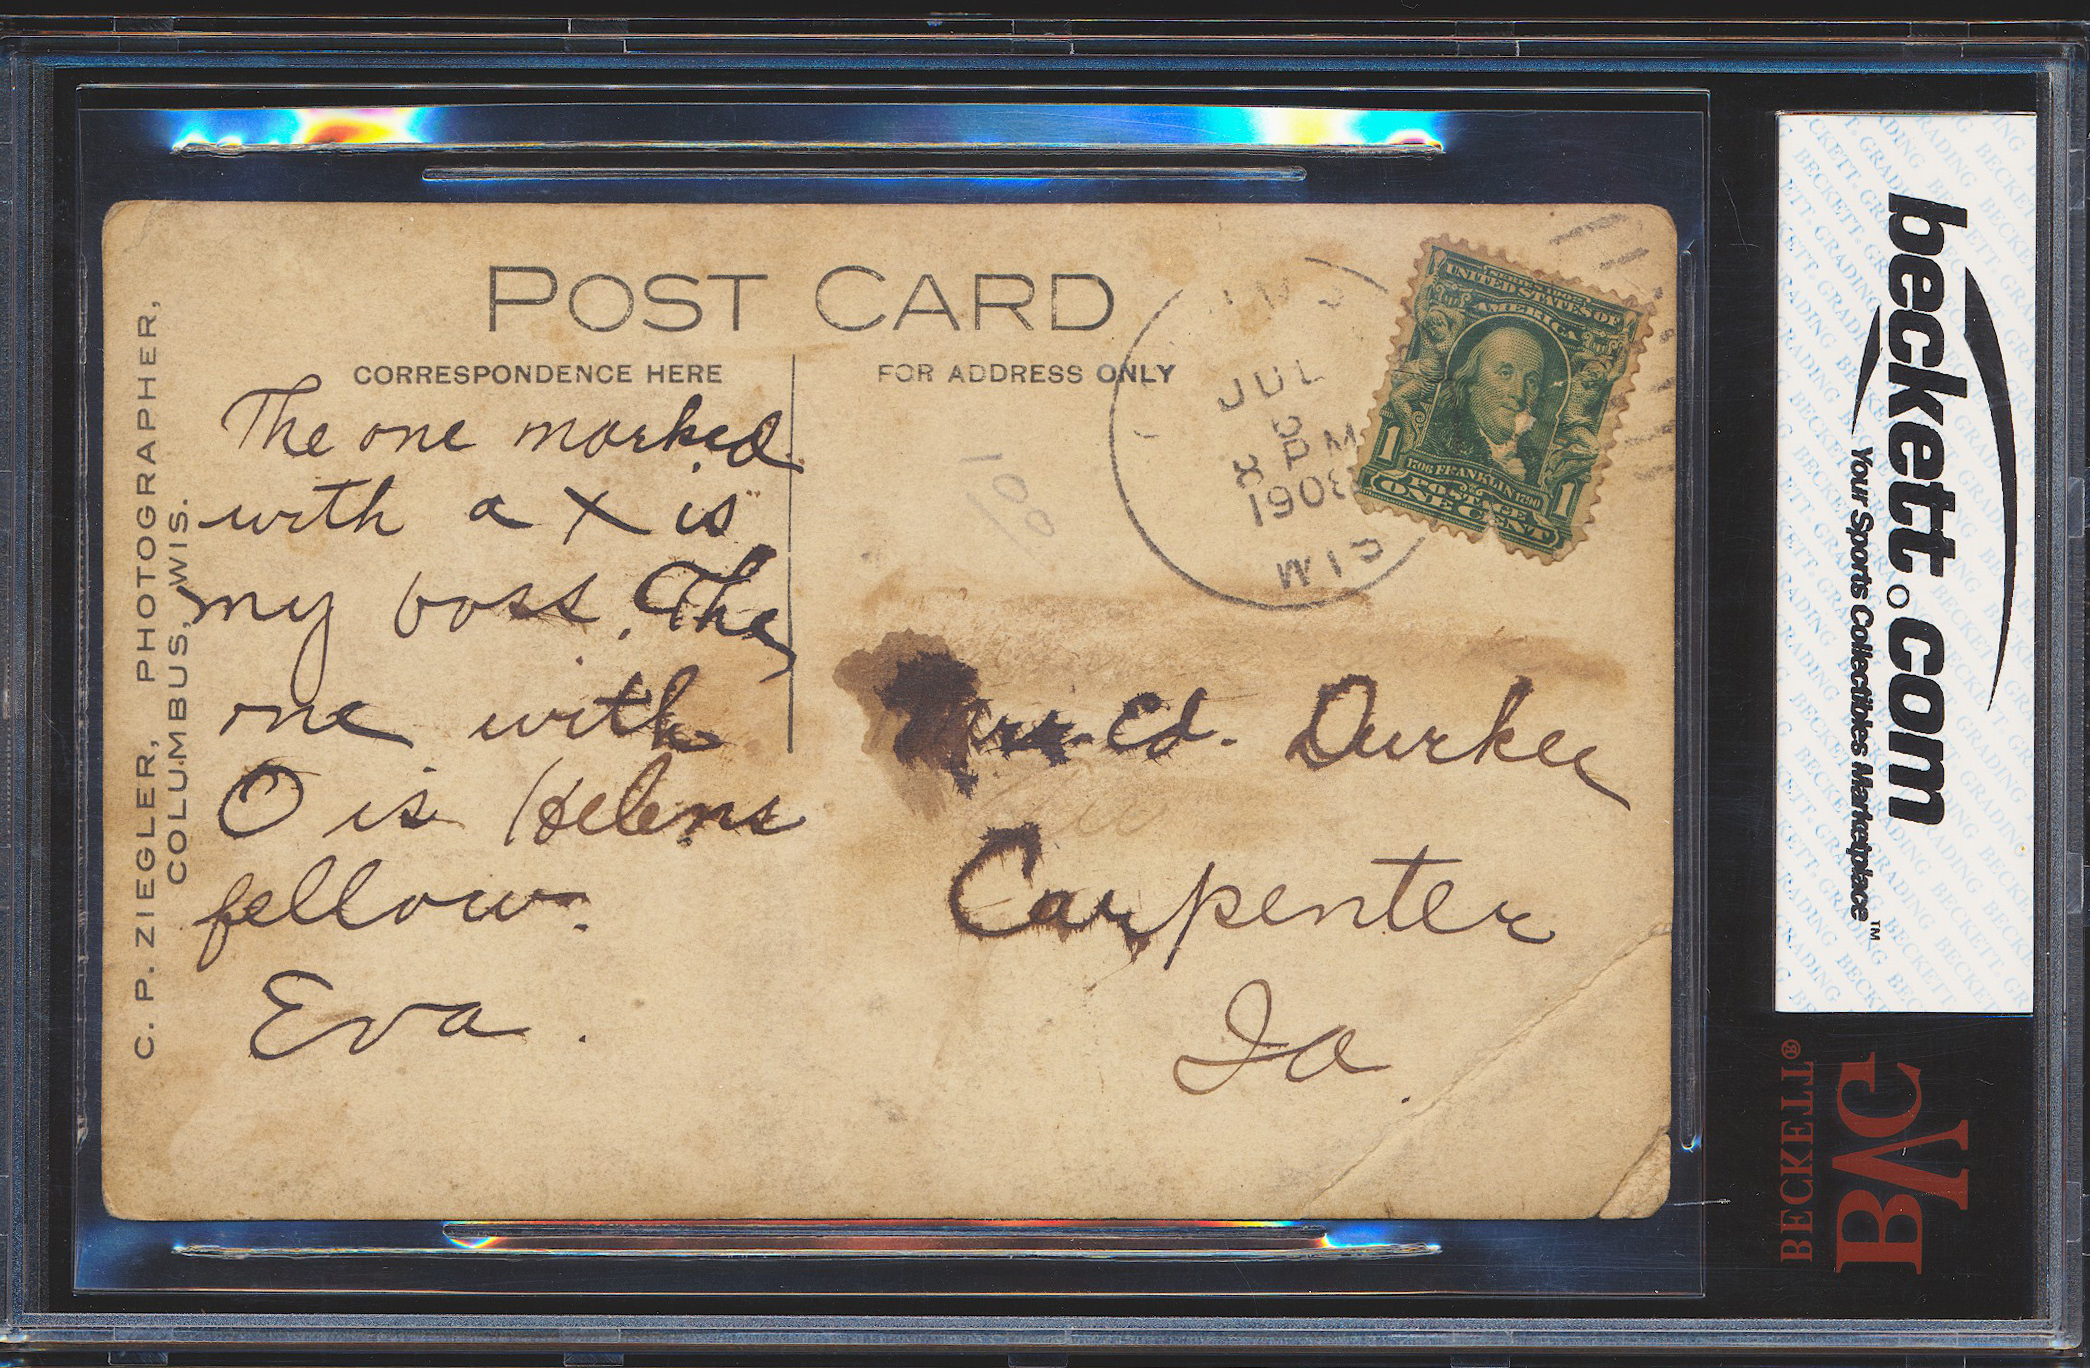 POST CARD
CORRESPONDENCE HERE
FOR ADDRESS ONLY
The one marked
with a X is
my boss. The
one with
O is Helens
fellow.
Eva.
Ed. Durkee
Carpenter
Ia.
C. P. ZIEGLER, PHOTOGRAPHER,
COLUMBUS, WIS.
JUL
5
8 PM
1908
WIS
UNITED STATES OF
AMERICA
1706 FRANKLIN 1790
POSTAGE
1 ONE CENT 1
beckett.com
Your Sports Collectibles Marketplace™
BECKETT®
BVG